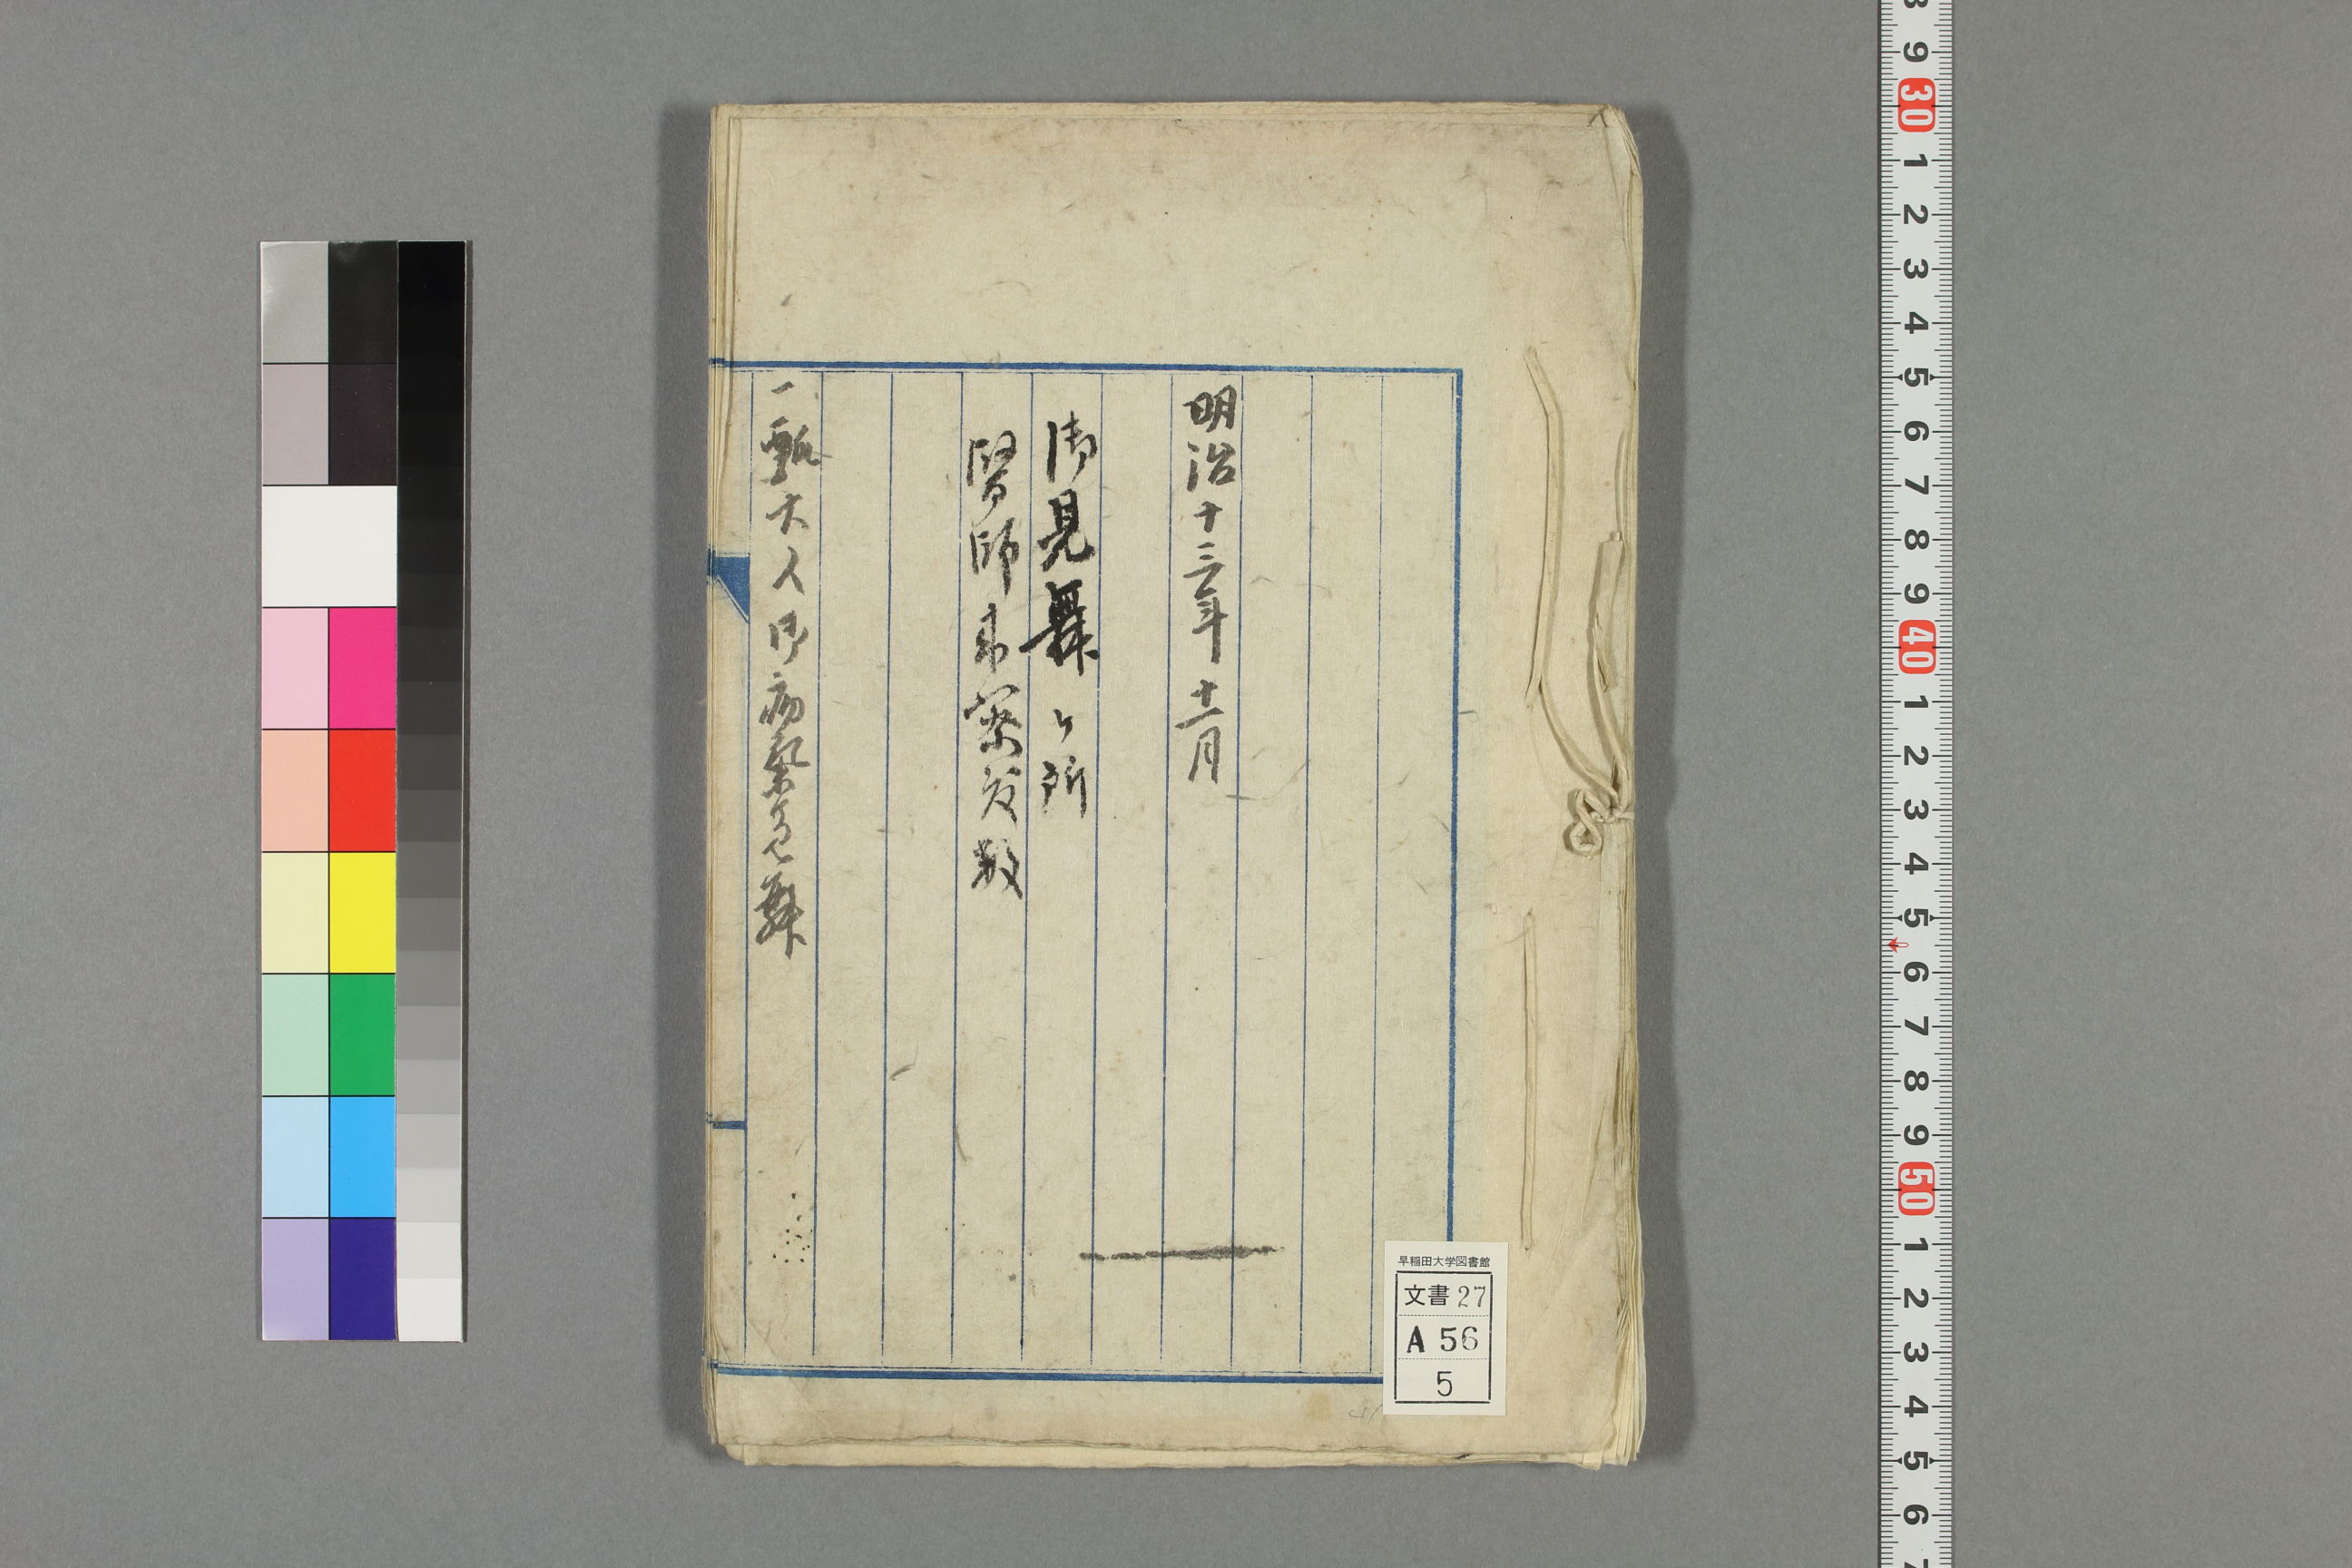 明治十三年十一月
御見舞ヶ所
醫師来察度数
一瓢大人御病氣見舞
早稲田大学図書館
文書 27
A 56
5
9
30
1
2
3
4
5
6
7
8
9
40
1
2
3
4
5
6
7
8
9
50
1
2
3
4
5
6